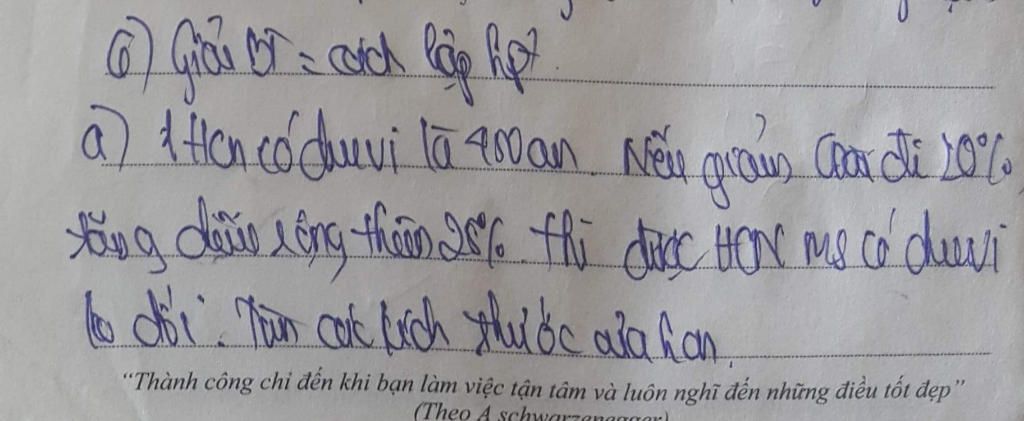 6) Giải BT = cách lập hpt
a) 1 Hcn có chu vi là 400 cm. Nếu giảm đi 20%
tăng chiều rộng thêm 25% thì được HCN có chu vi
ko đổi. Tìm các kích thước của hcn.
"Thành công chỉ đến khi bạn làm việc tận tâm và luôn nghĩ đến những điều tốt đẹp"
(Theo A schwarzenegger)